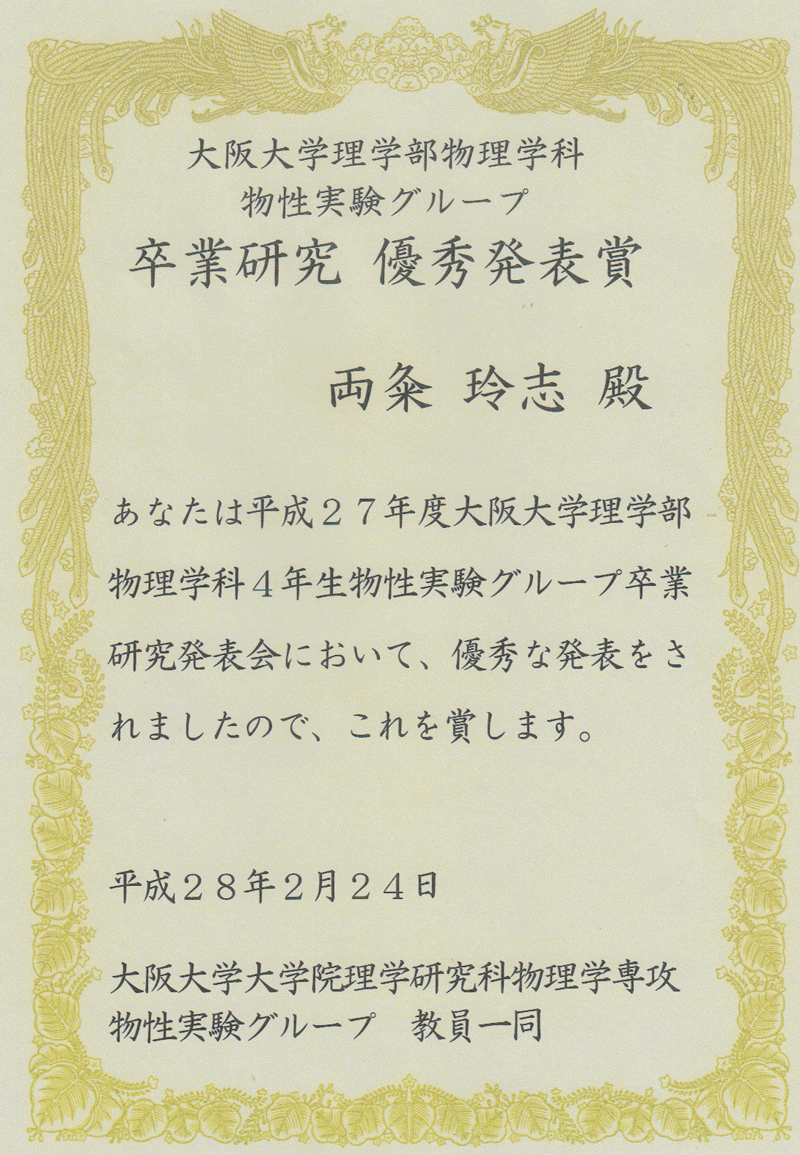 大阪大学理学部物理学科
物性実験グループ
卒業研究 優秀発表賞
両粂 玲志 殿
あなたは平成27年度大阪大学理学部
物理学科4年生物性実験グループ卒業
研究発表会において、優秀な発表をさ
れましたので、これを賞します。
平成28年2月24日
大阪大学大学院理学研究科物理学専攻
物性実験グループ 教員一同